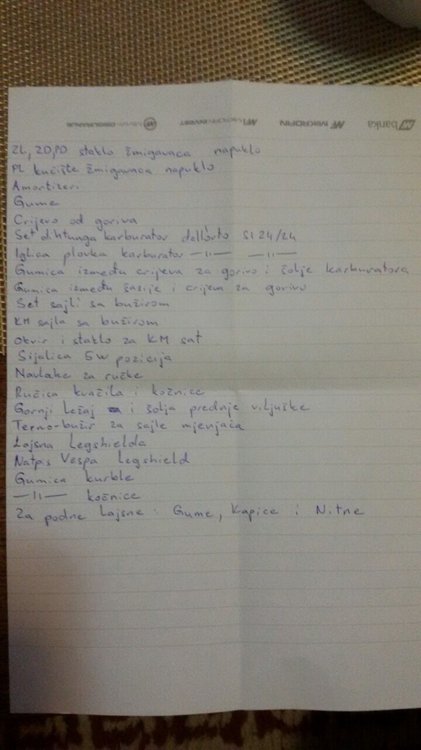 banka MIKROFIN
ZL, ZD, PD staklo žmigavaca napuklo
PL kućište žmigavaca napuklo
Amortizeri
Gume
Crijevo od goriva
Set dihtunga karburator dellorto SI 24/24
Iglica plovka karburator —11— —11—
Gumica između crijeva za gorivo i šolje karburatora
Gumica između šasije i crijeva za gorivo
Set sajli sa bužirom
KM sajla sa bužirom
Okvir i staklo za KM sat
Sijalica 5W pozicija
Navlake za ručke
Ručica kvačila i kočnice
Gornji Ležaj i šolja prednje viljuške
Termo-bužir za sajle mjenjača
Lajsna Legshielda
Natpis Vespa Legshield
Gumica kurble
—11— kočnice
Za podne Lajsne: Gume, Kapice i Nitne